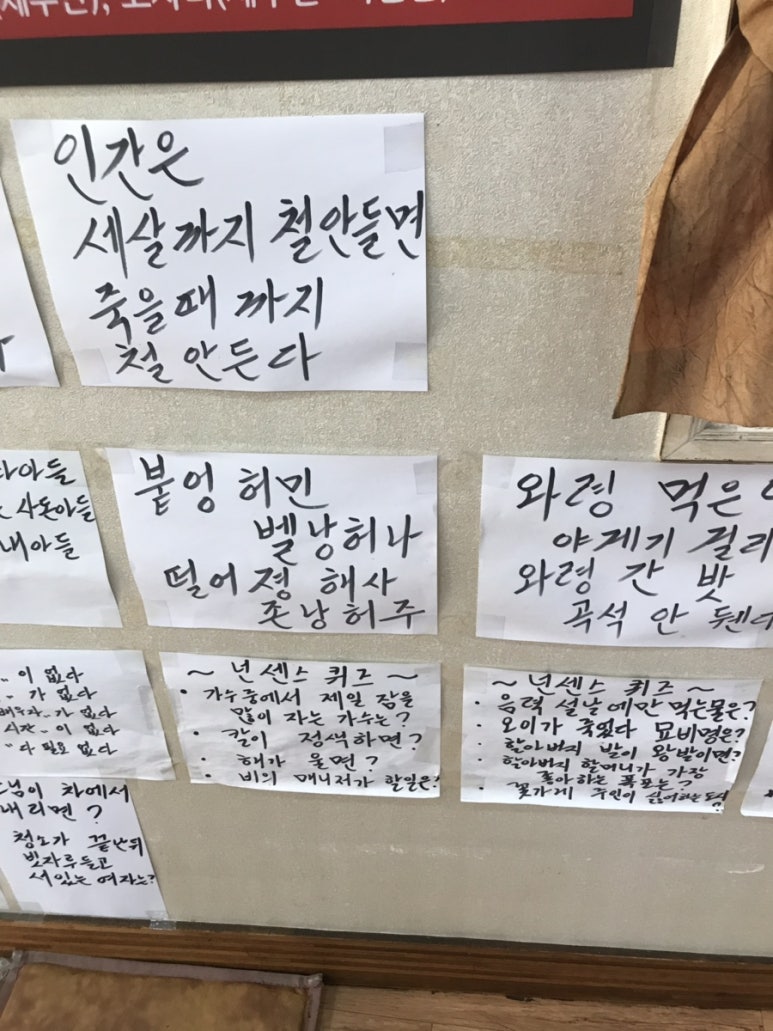 인간은
세살까지 철안들면
죽을때 까지
철 안든다
다아들
사돈아들
내아들
붙엉 허민
벨낭허나
떨어졍 해사
존낭허주
와령 먹은
야계기 걸리
와령 간 밧
곡석 안 뒌다
이 없다
가 없다
가 없다
이 없다
다 필요 없다
~ 넌센스 퀴즈 ~
· 가수중에서 제일 잠을
많이 자는 가수는?
· 칼이 정색하면?
· 해가 울면?
· 비의 매니저가 할일은?
~ 넌센스 퀴즈 ~
· 음력 설날에만 먹는물은?
· 오이가 죽었다 묘비명은?
· 할아버지 발이 왕발이면?
· 할아버지 할머니가 가장
좋아하는 폭포는?
· 꽃가게 주인이 싫어하는 도시
?
님이 차에서
내리면?
청소가 끝난뒤
빗자루들고
서있는 여자는?